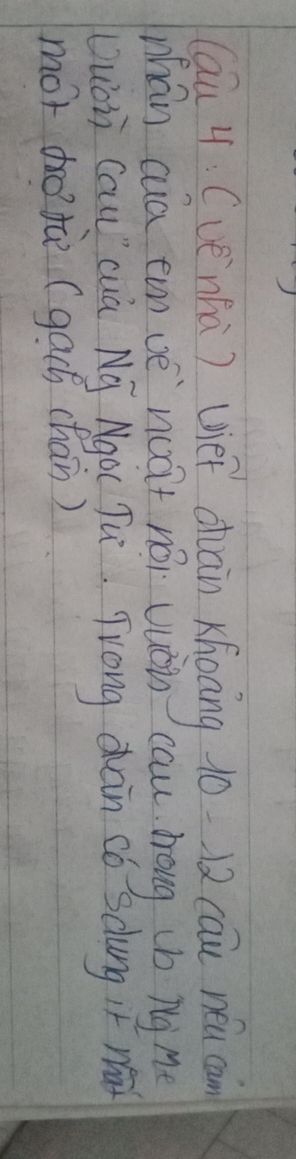 Câu 4: (về nhà) Viết đoàn khoảng 10 - 12 câu nêu cảm
nhân của em về người nội vườn cau trong vb Ng Mẹ
Vườn Cau" của Ng Ngọc Tư. Trong đoàn có sdụng ít nhất
một trợ từ (gạch chân)